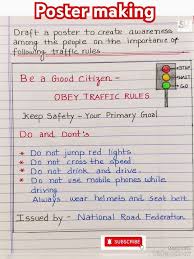 Poster making
Draft a poster to create awareness
among the people on the importance of
following traffic rules
STOP
WAIT
GO
Be a Good Citizen -
OBEY TRAFFIC RULES
Keep Safety - Your Primary Goal
Do and Dont's
* Do not jump red lights
* Do not cross the speed
* Do not drink and drive
* Do not use mobile phones while
driving
Always wear helmets and seat belt
Issued by - National Road Federation
SUBSCRIBE